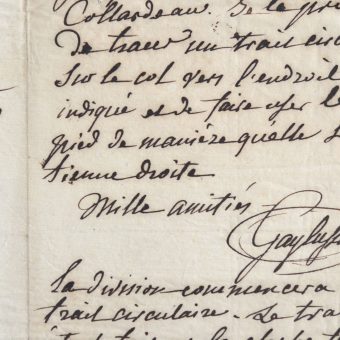 Collardeau. Je le pri
de tracer un trait circ
sur le col vers l'endroit
indiqué et de faire user le
pied de manière qu'elle s
tienne droite
Mille amitiés
Gayluss
la division commencera
trait circulaire. Le tra